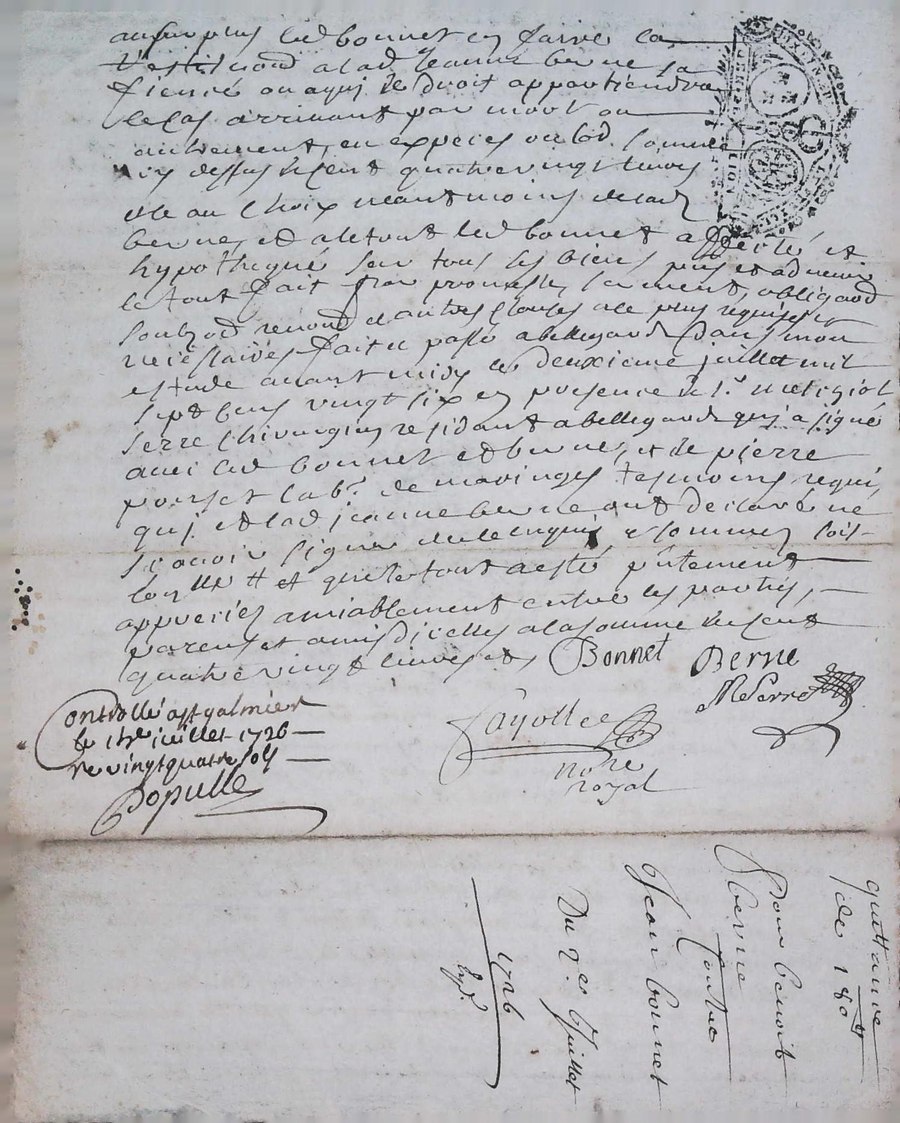 led bonnet en faire la
a lad Jeanne berne sa
fiencé ou a qui le droit appartiendra
le cas arrivant par mort ou
autrement, en especes ou lad. somme
cy dessus de cent quatre vingt livres
et le au choix neantmoins de lad
berne, et a le tout led bonnet affecté et
hypothequé sur tous ses biens pnts et advenir
le tout fait par promesses, serment, obligaõn
soubzõn renonõn et autres clauses a ce plus requises et
necessaires fait et passé a bellegarde dans mon
estude avant midy le deuxieme juillet mil
sept cens vingt six en presence de sr.
serre chirurgien residant a bellegarde qui a signé
avec led bonnet et berne, et de pierre
poncet labr. de maringes tesmoins requis
qui et lad jeanne berne ont declaré ne
scavoir signer de ce enquis et sommes
et que le tout a esté pñtement
apprecié amiablement entre les parties,
parens et amis dicelles a la somme de cent
quatre vingt livres Bonnet Berne
MSerre
Fayolle
no.re
royal
Controllé a St galmier
le juillet 1726
re vingt quatre sols
Populle
quittance
de 180 ₶
Pour benoit
berne
contre
Jean bonnet
Du 2.e Juillet
1726